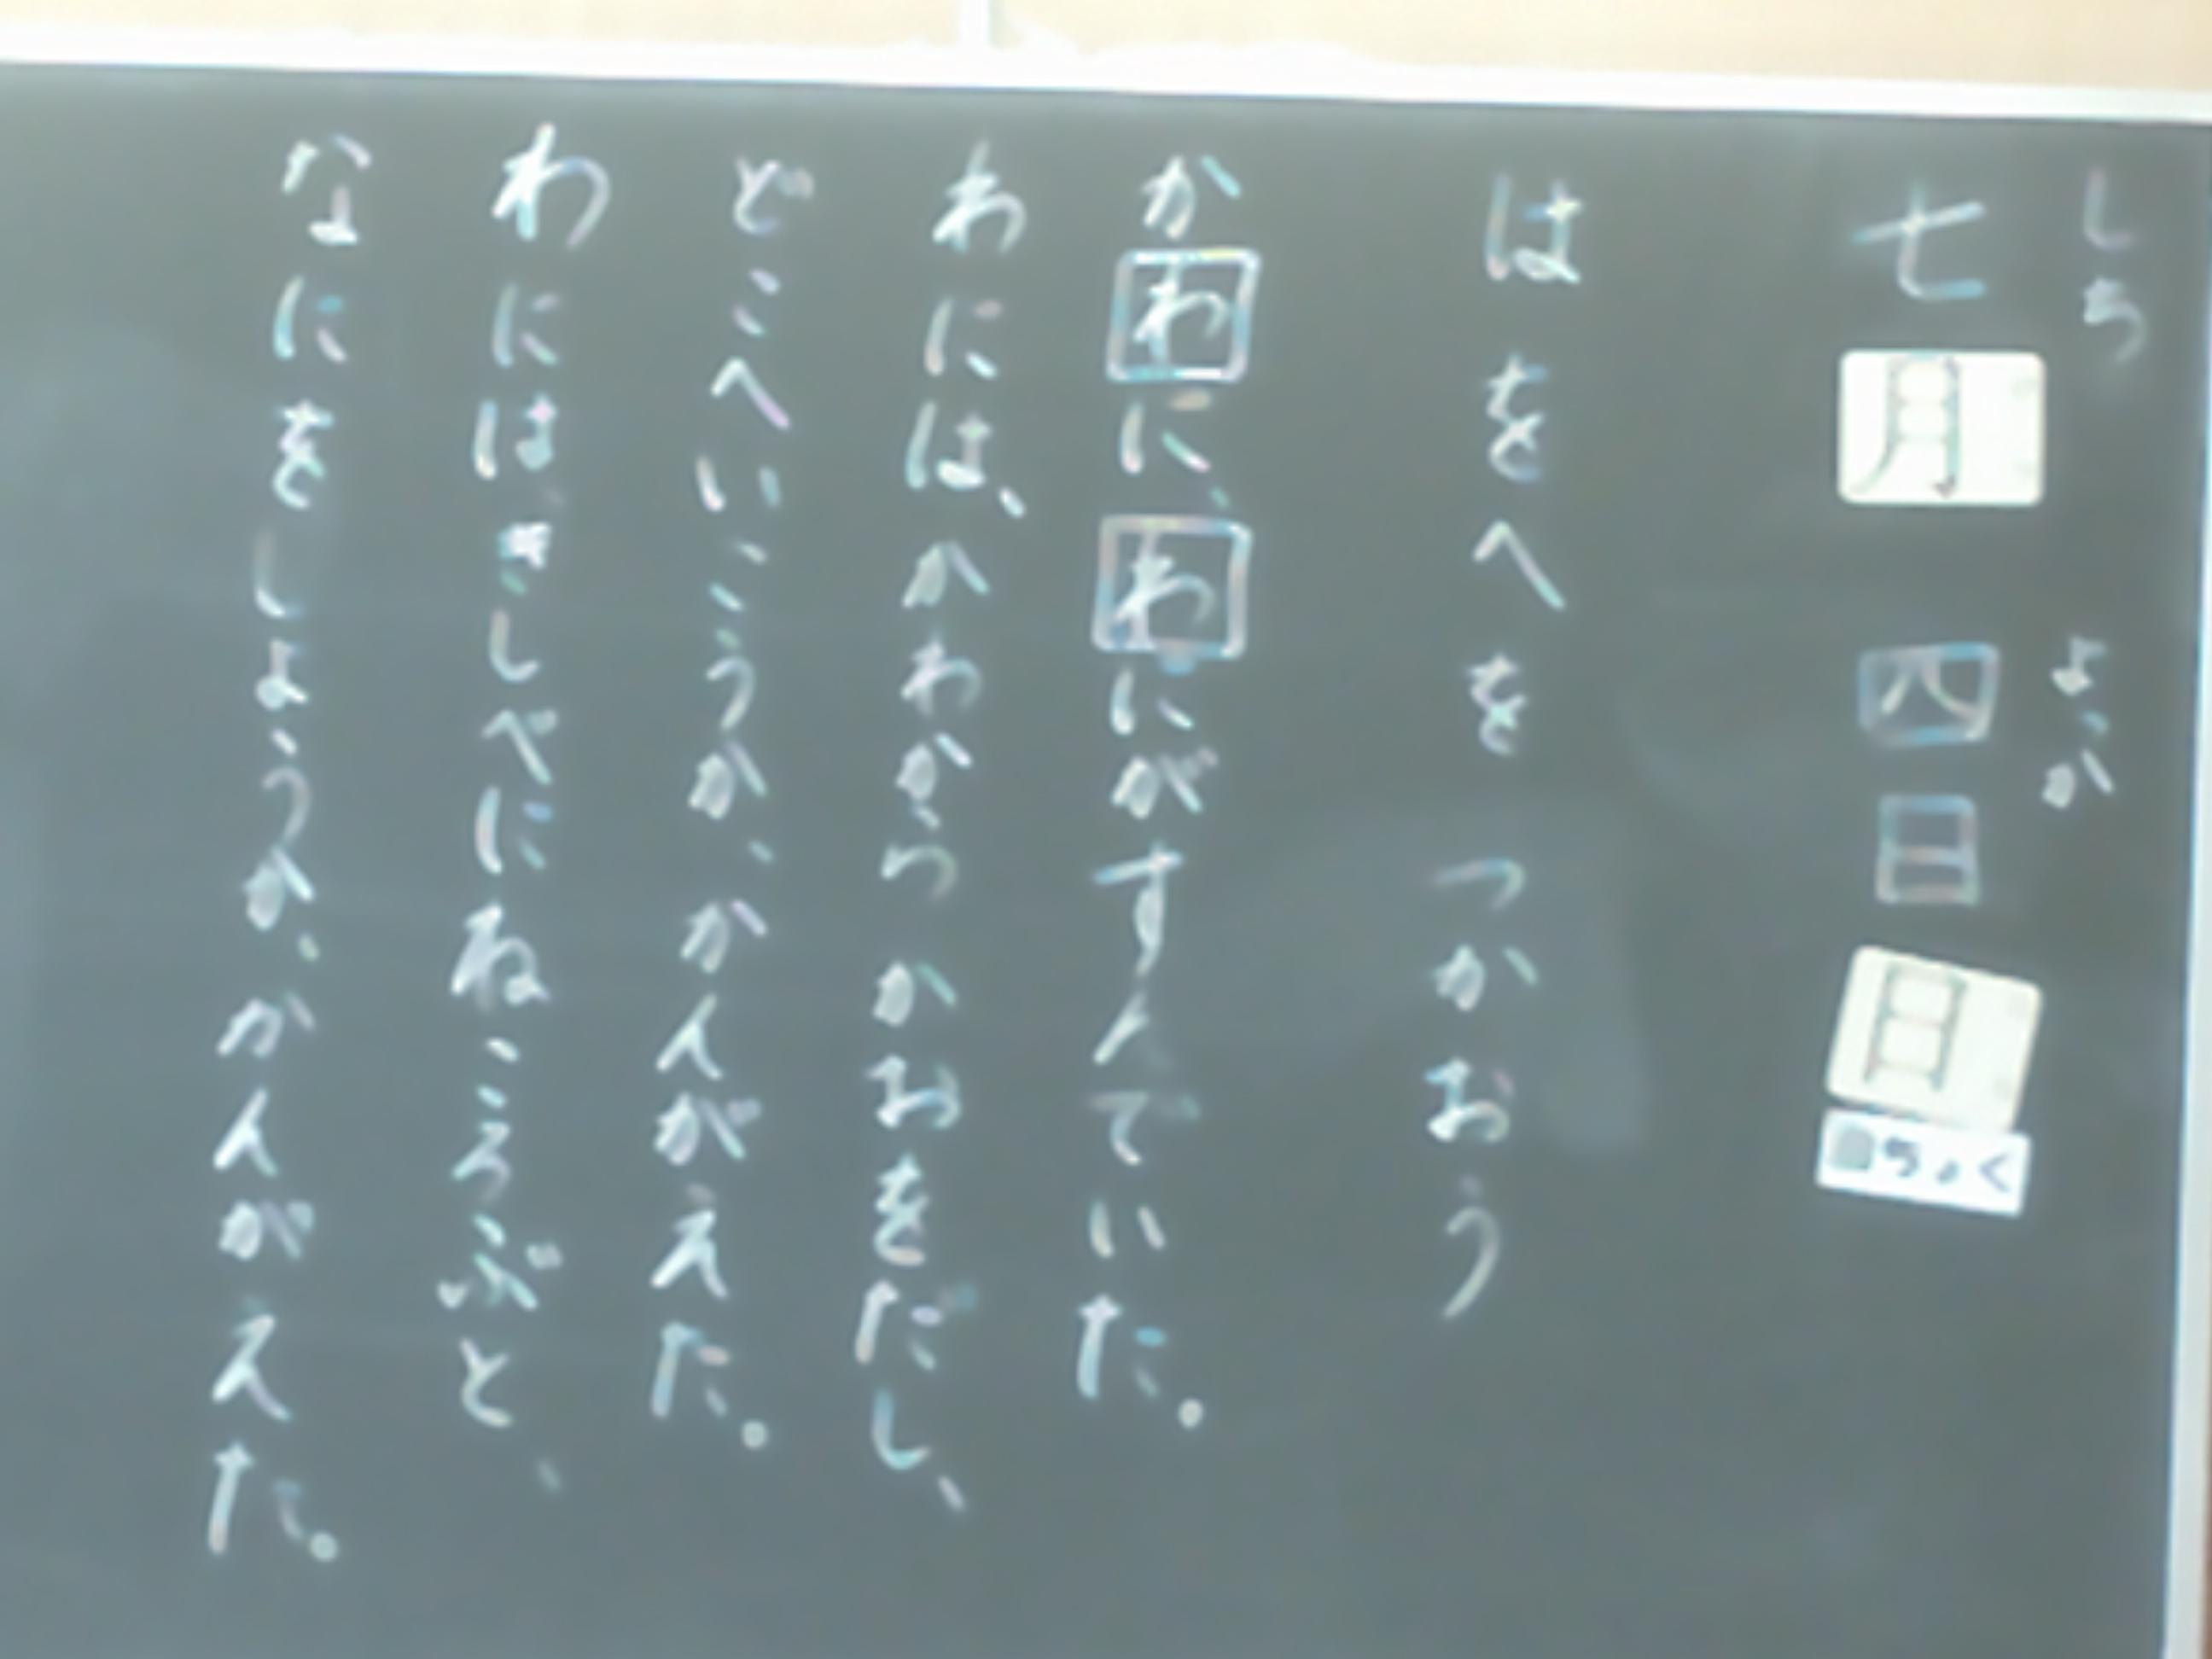 しち よっか
七月四日 日
ちょく
はをへを つかおう
かわに、わにがすんでいた。
わには、かわからかおをだし、
どこへいこうか、かんがえた。
わには、きしべにねころぶと、
なにをしようか、かんがえた。